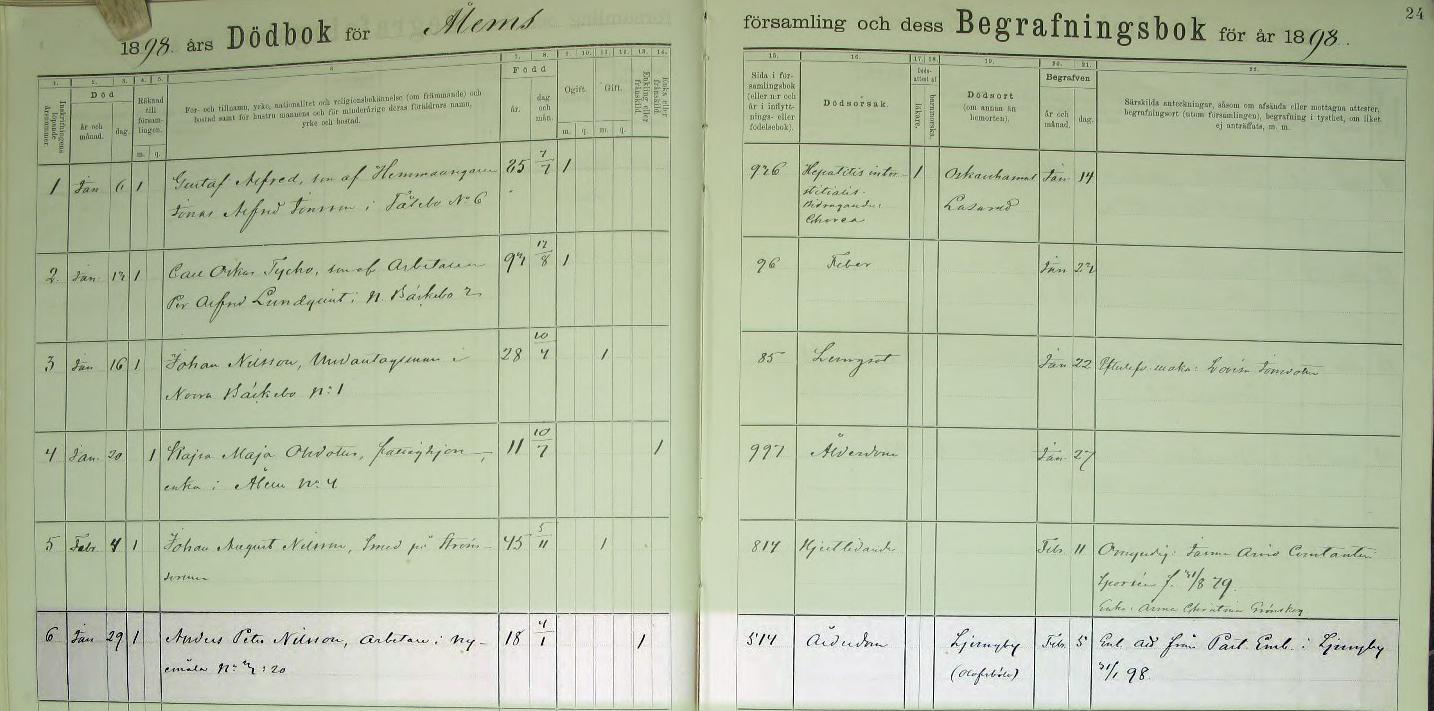 1898 års Dödbok för Ålems
församling och dess Begrafningsbok för år 1898.
24
1. 2. 3. 4. 5. 6. 7. 8. 9. 10. 11. 12. 13. 14.
Inskrifningens löpande årsnummer.
Död
år och månad.
dag.
Räknad till församlingen.
m. q.
För- och tillnamn, yrke, nationalitet och religionsbekännelse (om främmande) och
bostad samt för hustru mannens och för minderårige deras föräldrars namn,
yrke och bostad.
Född
år.
dag och mån.
Ogift.
m. q.
Gift.
m. q.
Enkling eller frånskild
Enka eller frånskild
15. 16. 17. 18. 19. 20. 21. 22.
Sida i församlingsbok (eller n:r och år i inflyttnings- eller födelsebok).
Dödsorsak.
Dödsattest af
läkare.
barnmorska.
Dödsort
(om annan än hemorten).
Begrafven
år och månad.
dag.
Särskilda anteckningar, såsom om afsända eller mottagna attester,
begrafningsort (utom församlingen), begrafning i tysthet, om liket
ej anträffats, m. m.
1 Jan 6 1 Gustaf Alfred, son af Hemmansegaren 85 7/7 1
Jonas Alfred Jonsson i Fälebo No 6
926 Hepatitis inter-
stitialis.
Bidragande:
Chorea
1 Oskarshamns
Lasarett
Jan 14
2 Jan 1 Carl Oskar Tycho, son af Arbetaren 97 17/8 1
Per Alfred Lundquist i N. Bäckebo 2
96 Feber Jan
3 Jan 16 1 Johan Nilsson, Undantagsman i 28 10/4 1
Norra Bäckebo N:1
85 Lungsot Jan 22 Efterlefv. maka: Lovisa Jonsdotter
4 Jan. 20 1 Kajsa Maja Olsdotter, fattighjon, 11 10/7 1
enka i Ålem No: 4
997 Ålderdom Jan 27
5 Febr 4 1 Johan August Nilsson, Smed på Ströms- 45 5/11 1
814 Hjertlidande Febr. 11 Omyndig:
f. 31/8 79.
Enka: Anna Christina
6 Jan 29 1 Anders Peter Nilsson, Arbetare i Ny- 18 4/1 1
emåla No: 20
514 Ålderdom Ljungby Febr. 5 Enl. att från Past. Emb. i Ljungby
31/1 98.